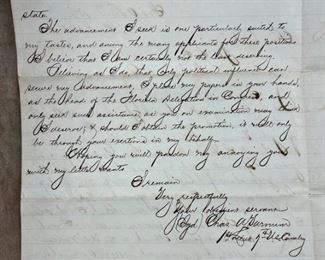 state.
The advancement I seek is one particularly suited to
my tastes, and among the many applicants for these positions
I believe that I am certainly not the least deserving.
Believing as I do that only political influence can
secure my advancement, I place my papers in your hands,
as the Head of the Florida Delegation in Congress, and
only seek such assistance as you on examination may think
I deserve; & should I obtain the promotion, it will only
be through your exertions in my behalf.
Hoping you will pardon my annoying you
with my little wants
I remain
Very respectfully
Your obedient servant
(Sgd) Chas A.
1st Lieut 9th US Cavalry